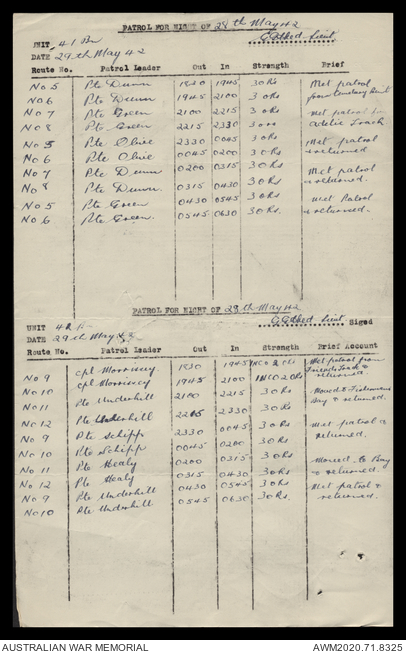 PATROL FOR NIGHT OF 28th May 42
UNIT 41 Bn Lieut.
DATE 29th May 42
Route No. Patrol Leader Out In Strength Brief
No 5 Pte Dunn 1830 1945 3 ORs Met patrol
No 6 Pte Dunn 1945 2100 3 ORs from
No 7 Pte Green 2100 2215 3 ORs Met patrol
No 8 Pte Green 2215 2330 3 ORs Track
No 5 Pte Olive 2330 0045 3 ORs Met patrol
No 6 Pte Olive 0045 0200 3 ORs & returned
No 7 Pte Dunn 0200 0315 3 ORs Met patrol
No 8 Pte Dunn 0315 0430 3 ORs & returned.
No 5 Pte Green 0430 0545 3 ORs Met Patrol
No 6 Pte Green 0545 0630 3 ORs. & returned.
PATROL FOR NIGHT OF 28th May 42
UNIT Lieut. Signed
DATE 29th May 42
Route No. Patrol Leader Out In Strength Brief Account
No 9 Cpl Morrissey 1830 1945 1 NCO 2 ORs Met patrol from
No 10 Cpl Morrissey 1945 2100 1 NCO 2 ORs Track & returned
No 11 Pte Underhill 2100 2215 3 ORs Moved to Fishermans
No 12 Pte Underhill 2215 2330 3 ORs Bay & returned.
No 9 Pte Schipp 2330 0045 3 ORs Met patrol &
No 10 Pte Schipp 0045 0200 3 ORs returned.
No 11 Pte Healy 0200 0315 3 ORs Moved to Bay
No 12 Pte Healy 0315 0430 3 ORs & returned.
No 9 Pte Underhill 0430 0545 3 ORs Met patrol &
No 10 Pte Underhill 0545 0630 3 ORs returned.
AUSTRALIAN WAR MEMORIAL AWM2020.71.8325